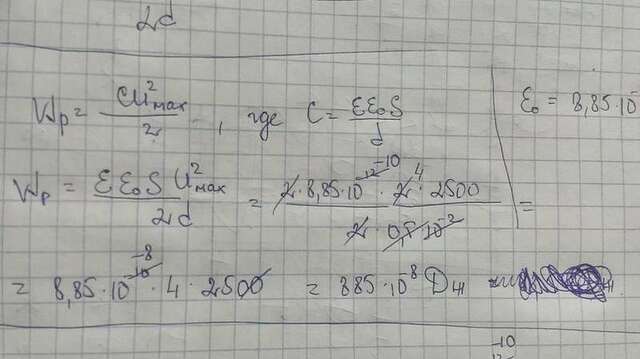 2d
Wp = CU²max / 2, где C = EE₀S / d
E₀ = 8,85·10
Wp = EE₀S U²max / 2d = 2·8,85·10⁻¹² ⁻¹⁰ · 2 ⁴ · 2500 / 2 · 0,5·10⁻² =
= 8,85·10⁻¹⁰ ⁻⁸ · 4 · 2500 = 885·10⁻⁸ Дж
-10